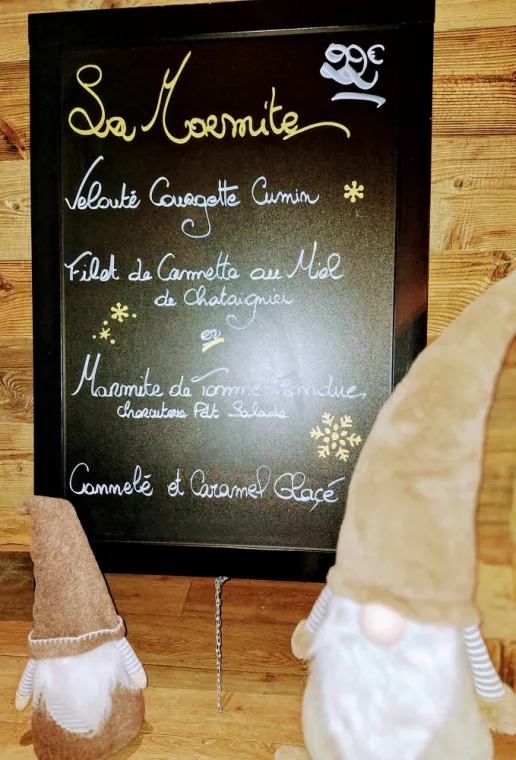 22€
La Marmite
Velouté Courgette Cumin
Filet de Cannette au Miel
de Chataignier
ou
Marmite de Tomme Fondue
charcuterie Petit Salade
Cannelé et Caramel Glaçé